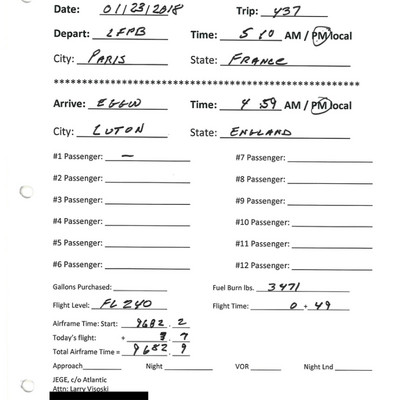 Date: 01/23/2018 Trip: 437
Depart: LFPB Time: 5 10 AM / PM local
City: PARIS State: FRANCE
****************************************************************
Arrive: EGGW Time: 4 59 AM / PM local
City: LUTON State: ENGLAND
#1 Passenger: — #7 Passenger:
#2 Passenger: #8 Passenger:
#3 Passenger: #9 Passenger:
#4 Passenger: #10 Passenger:
#5 Passenger: #11 Passenger:
#6 Passenger: #12 Passenger:
Gallons Purchased: Fuel Burn lbs. 3471
Flight Level: FL 240 Flight Time: 0 + 49
Airframe Time: Start: 9682 . 2
Today's flight: + . 7
Total Airframe Time = 9682 . 9
Approach Night VOR Night Lnd
JEGE, c/o Atlantic
Attn: Larry Visoski